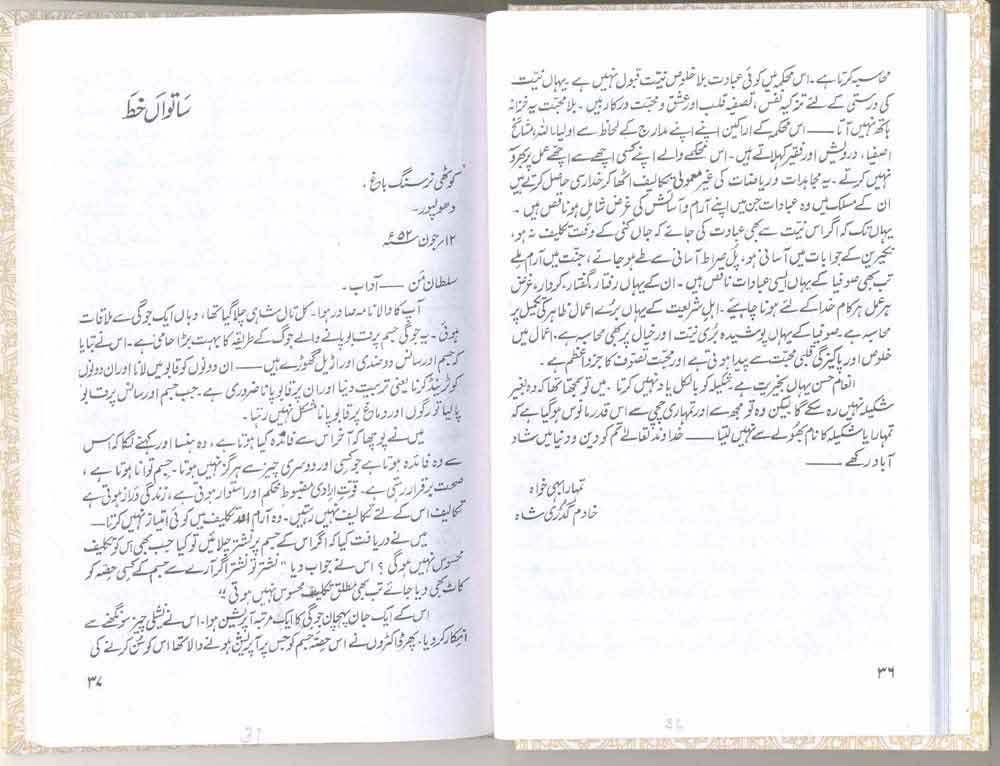 محاسبہ کرتا ہے۔ اس محکمہ میں کوئی عبادت بلا خلوص نیت قبول نہیں ہے۔ یہاں نیت
کی درستی کے لئے تزکیہ نفس، تصفیہ قلب اور عشق و محبت درکار ہیں۔ بلا محبت یہ خزانہ
ہاتھ نہیں آتا —— اس محکمہ کے اراکین اپنے اپنے مدارج کے لحاظ سے اولیاء اللہ، مشائخ
اصفیا، درویش اور فقیر کہلاتے ہیں۔ اس محکمے والے اپنے کسی اچھے سے اچھے عمل پر بھروسہ
نہیں کرتے۔ یہ مجاہدات و ریاضات کی غیر معمولی تکالیف اٹھا کر خداری حاصل کرتے ہیں
ان کے مسلک میں وہ عبادات جن میں اپنے آرام و آسائش کی غرض شامل ہو ناقص ہیں۔
یہاں تک کہ اگر اس نیت سے بھی عبادت کی جائے کہ جاں کنی کے وقت تکلیف نہ ہو،
نکیرین کے جوابات میں آسانی ہو، پل صراط آسانی سے طے ہو جائے، جنت میں آرام ملے
تب بھی صوفیا کے یہاں ایسی عبادات ناقص ہیں۔ ان کے یہاں رفتار، گفتار، کردار، غرض
ہر عمل ہر کام خدا کے لئے ہونا چاہیئے۔ اہل شریعت کے یہاں برے اعمال ظاہر کی تکمیل پر
محاسبہ ہے۔ صوفیا کے یہاں پوشیدہ بری نیت، اور خیال پر بھی محاسبہ ہے۔ اعمال میں
خلوص اور پاکیزگی قلبی محبت سے پیدا ہوتی ہے اور محبت تصوف کا جزو اعظم ہے۔
انعام حسن یہاں بخیریت ہے شکیلہ کو بالکل یاد نہیں کرتا۔ میں تو سمجھتا تھا کہ وہ بغیر
شکیلہ نہیں رہ سکے گا لیکن وہ تو مجھ سے اور تمہاری چچی سے اس قدر مانوس ہو گیا ہے کہ
تمہارا یا شکیلہ کا نام بھولے سے نہیں لیتا —— خداوند تعالےٰ تم کو دین و دنیا میں شاد
آباد رکھے ——
تمہارا بہی خواہ
خادم گدڑی شاہ
۳۶
ساتواں خط
کوٹھی نرسنگ باغ،
دھولپور۔
۱۲ جون ۵۲ء
سلطان من —— آداب۔
آپ کا والا نامہ صادر ہوا۔ کل تال شاہی چلا گیا تھا، وہاں ایک جوگی سے ملاقات
ہوئی۔ یہ جوگی جسم پر قابو پانے والے جوگ کے طریقہ کا بہت بڑا حامی ہے۔ اس نے بتایا
کہ جسم اور سانس دو ضدی اور اڑیل گھوڑے ہیں —— ان دونوں کو قابو میں لانا اور ان دونوں
کو ٹرینڈ کرنا یعنی تربیت دینا اور ان پر قابو پانا ضروری ہے۔ جب جسم اور سانس پر قابو
پا لیا تو رگوں اور دماغ پر قابو پانا مشکل نہیں رہتا۔
میں نے پوچھا کہ آخر اس سے فائدہ کیا ہوتا ہے، وہ ہنسا اور کہنے لگا کہ اس
سے وہ فائدہ ہوتا ہے جو کسی اور دوسری چیز سے ہرگز نہیں ہوتا۔ جسم توانا ہوتا ہے،
صحت برقرار رہتی ہے۔ قوت ارادی مضبوط محکم اور استوار ہوتی ہے، زندگی دراز ہوتی ہے
تکالیف اس کے لئے تکالیف نہیں رہتیں۔ وہ آرام اور تکلیف میں کوئی امتیاز نہیں کرتا ——
میں نے دریافت کیا کہ اگر اس کے جسم پر نشتر چلائیں تو کیا جب بھی اس کو تکلیف
محسوس نہیں ہوگی؟ اس نے جواب دیا "نشتر تو نشتر اگر آرے سے جسم کے کسی حصہ کو
کاٹ بھی دیا جائے تب بھی مطلق تکلیف محسوس نہیں ہوتی"
اس کے ایک جان پہچان جوگی کا ایک مرتبہ آپریشن ہوا۔ اس نے نشیلی چیز سونگھنے سے
انکار کر دیا۔ پھر ڈاکٹروں نے اس حصہ جسم کو جس پر آپریشن ہونے والا تھا اس کو سن کرنے کی
۳۷
37
36